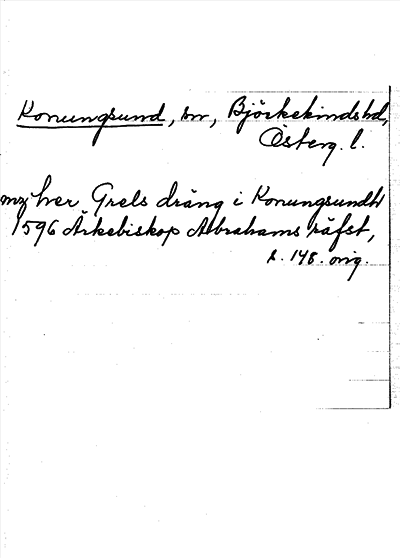 Konungsund, sn, Björkekindshd,
Österg. l.
mz her Grels dräng i Konungsundh
1596 Ärkebiskop Abrahams räfst,
s. 148. orig.